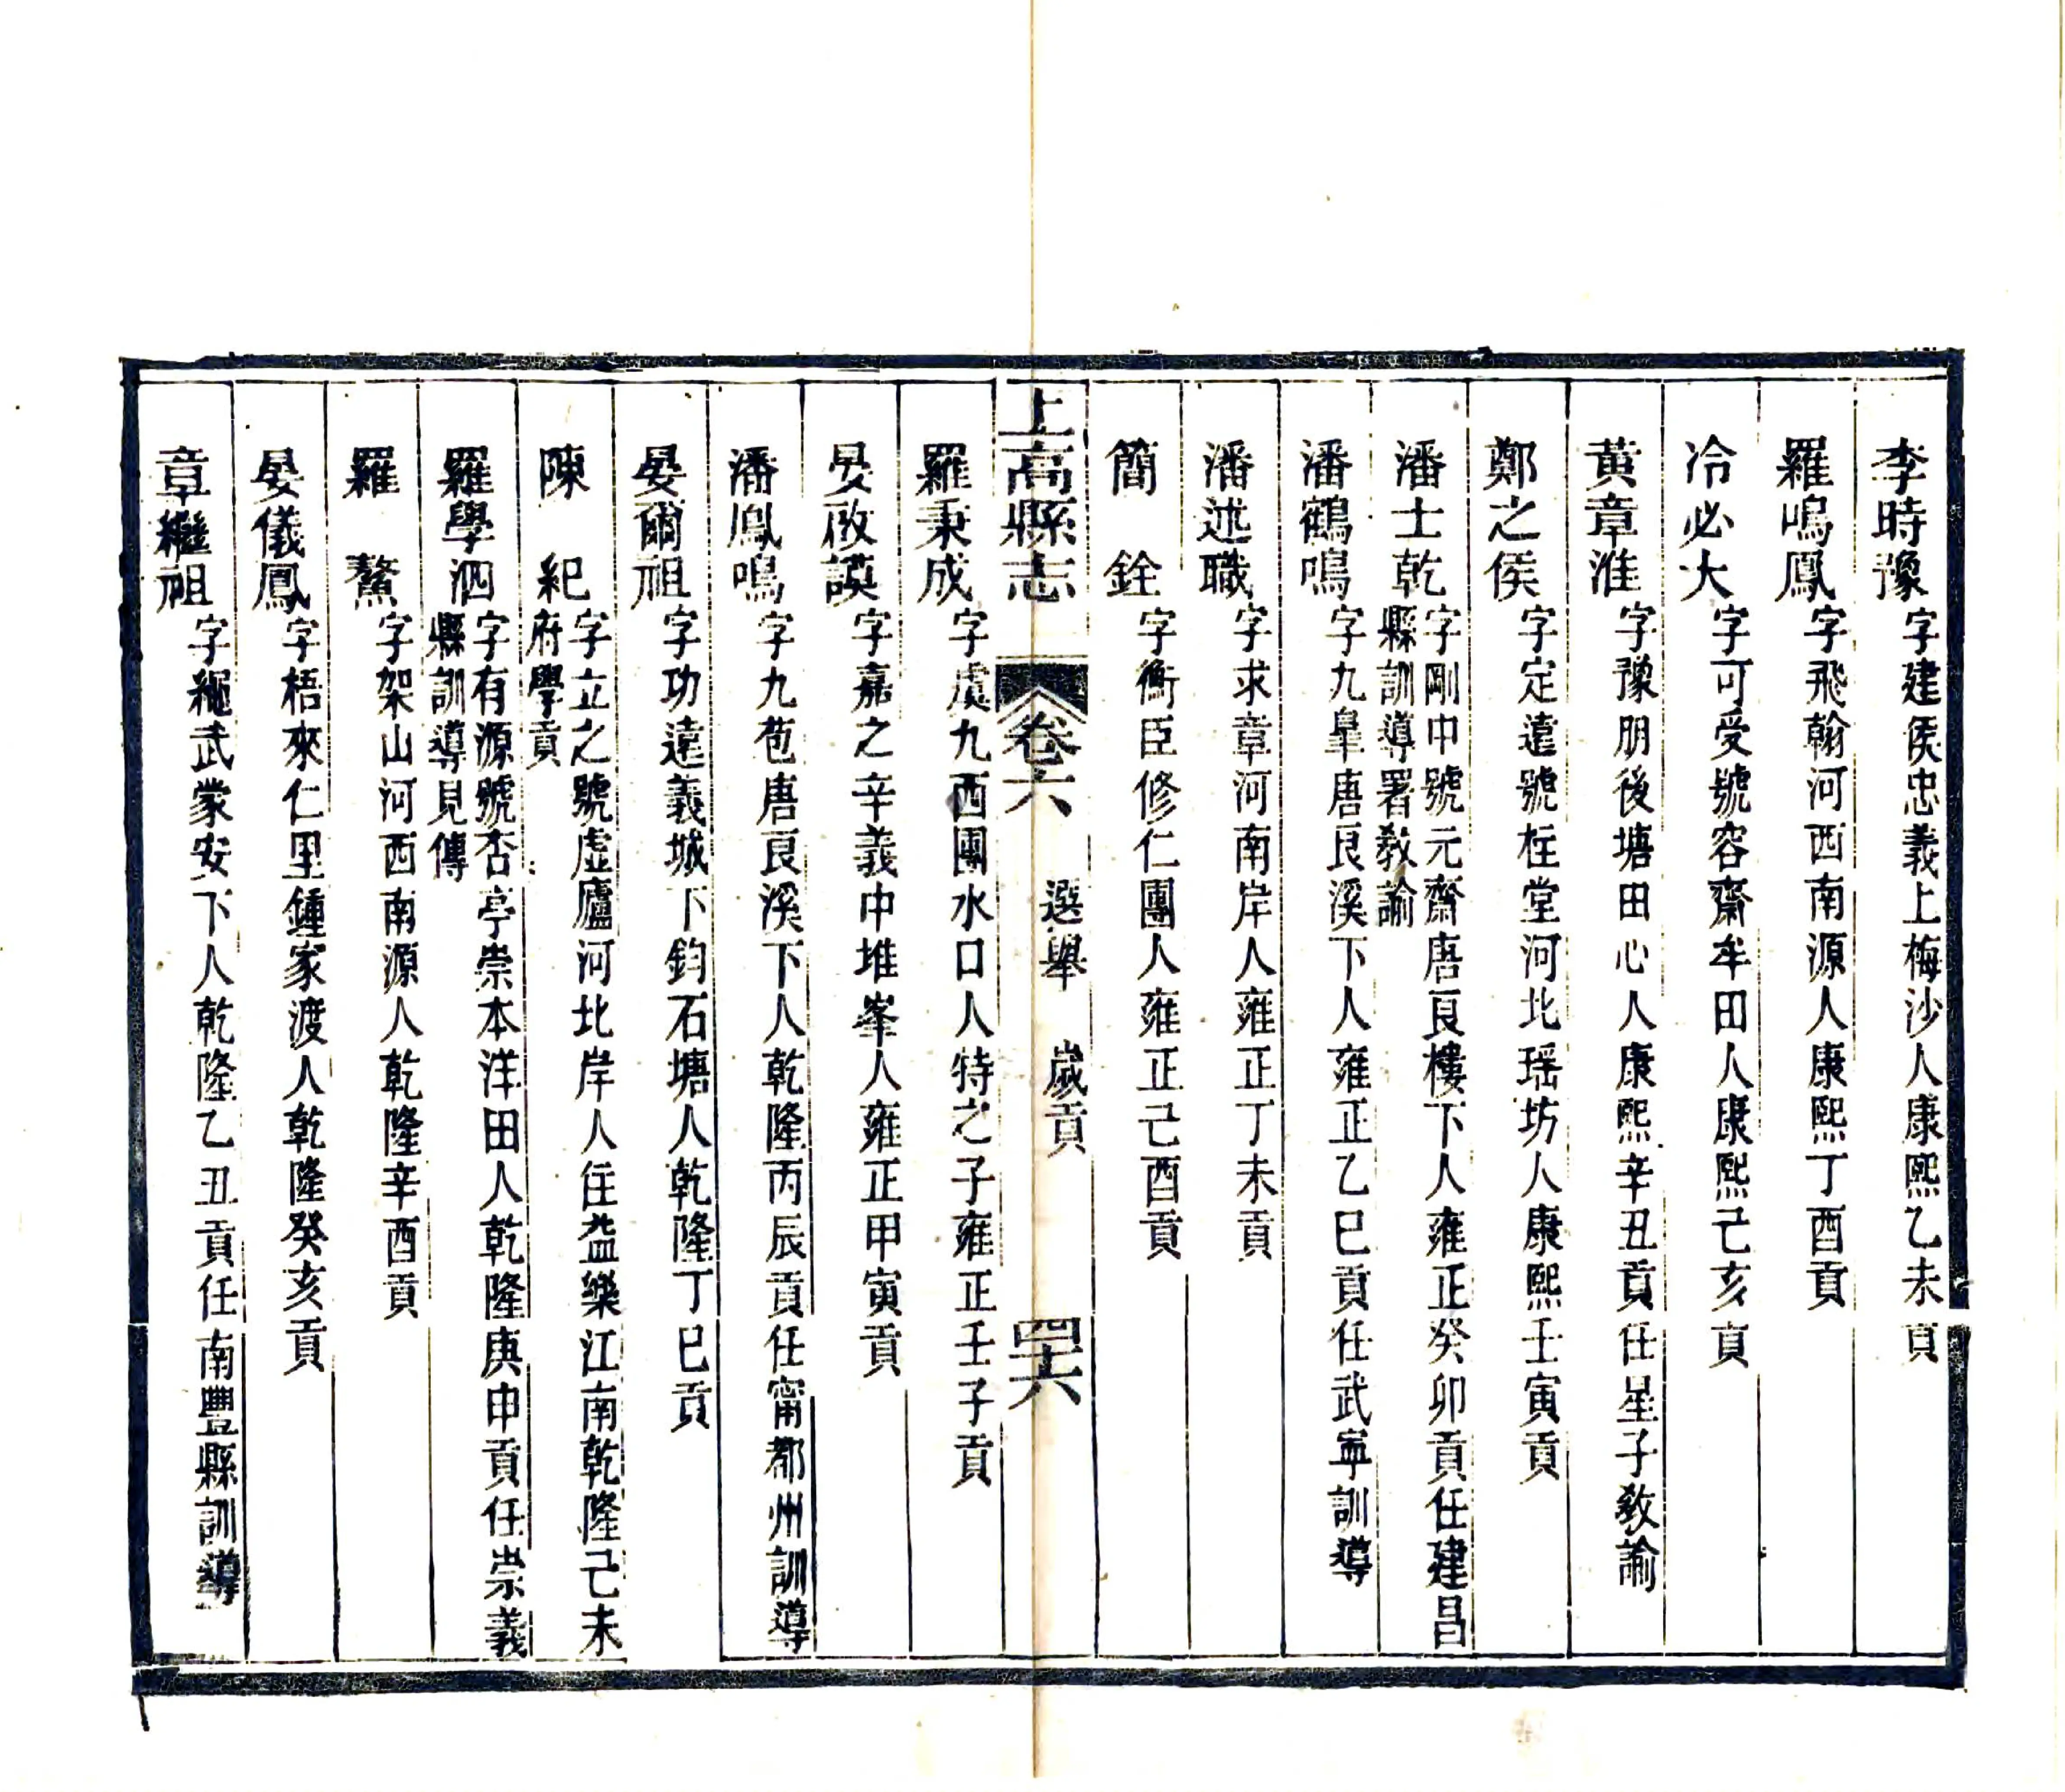 李時豫字建侯忠義上梅沙人康熙乙未貢
羅鳴鳳字飛翰河西南源人康熙丁酉貢
冷必大字可受號容齋牟田人康熙己亥貢
黄章淮字豫朋後塘田心人康熙辛丑貢任星子敎諭
鄭之侯字定遠號柱堂河北瑶坊人康熙壬寅貢
潘士乾字剛中號元齋唐良樓下人雍正癸卯貢任建昌
縣訓導署敎諭
潘鶴鳴字九皐唐良溪下人雍正乙巳貢任武寧訓導
潘述職字求章河南岸人雍正丁未貢
簡銓字衡臣修仁團人雍正己酉貢
上高縣志 卷六 選舉 歲貢 四十六
羅秉成字虞九西團水口人特之子雍正壬子貢
晏啟謨字嘉之辛義中堆峯人雍正甲寅貢
潘鳳鳴字九苞唐良溪下人乾隆丙辰貢任甯都州訓導
晏爾祖字功遠義城下鈞石塘人乾隆丁巳貢
陳紀字立之號虛廬河北岸人住益樂江南乾隆己未
府學貢
羅學泗字有源號杏亭崇本洋田人乾隆庚申貢任崇義
縣訓導見傳
羅鰲字架山河西南源人乾隆辛酉貢
晏儀鳳字梧來仁里鍾家渡人乾隆癸亥貢
章繼祖字繩武蒙安下人乾隆乙丑貢任南豐縣訓導